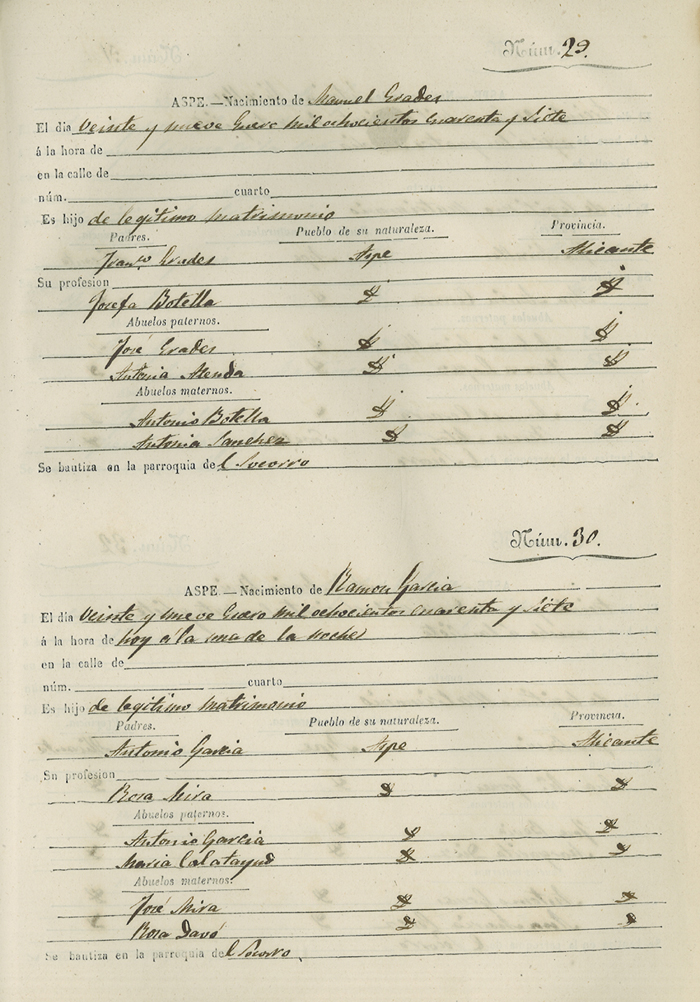 Núm. 29.
ASPE.—Nacimiento de Manuel Grades
El dia Veinte y nueve Enero mil ochocientos cuarenta y Siete
á la hora de
en la calle de
núm. cuarto
Es hijo de legitimo matrimonio
Padres. Pueblo de su naturaleza. Provincia.
Franco Grades Aspe Alicante
Su profesion
Josefa Botella
Abuelos paternos.
José Grades
Antonia Alenda
Abuelos maternos.
Antonio Botella
Antonia Sanchez
Se bautiza en la parroquia del Socorro
Núm. 30.
ASPE.—Nacimiento de Ramon Garcia
El dia Veinte y nueve Enero mil ochocientos cuarenta y Siete
á la hora de hoy á la una de la noche
en la calle de
núm. cuarto
Es hijo de legitimo matrimonio
Padres. Pueblo de su naturaleza. Provincia.
Antonio Garcia Aspe Alicante
Su profesion
Rosa Mira
Abuelos paternos.
Antonio Garcia
Maria Calatayud
Abuelos maternos.
José Mira
Rosa Davó
Se bautiza en la parroquia del Socorro